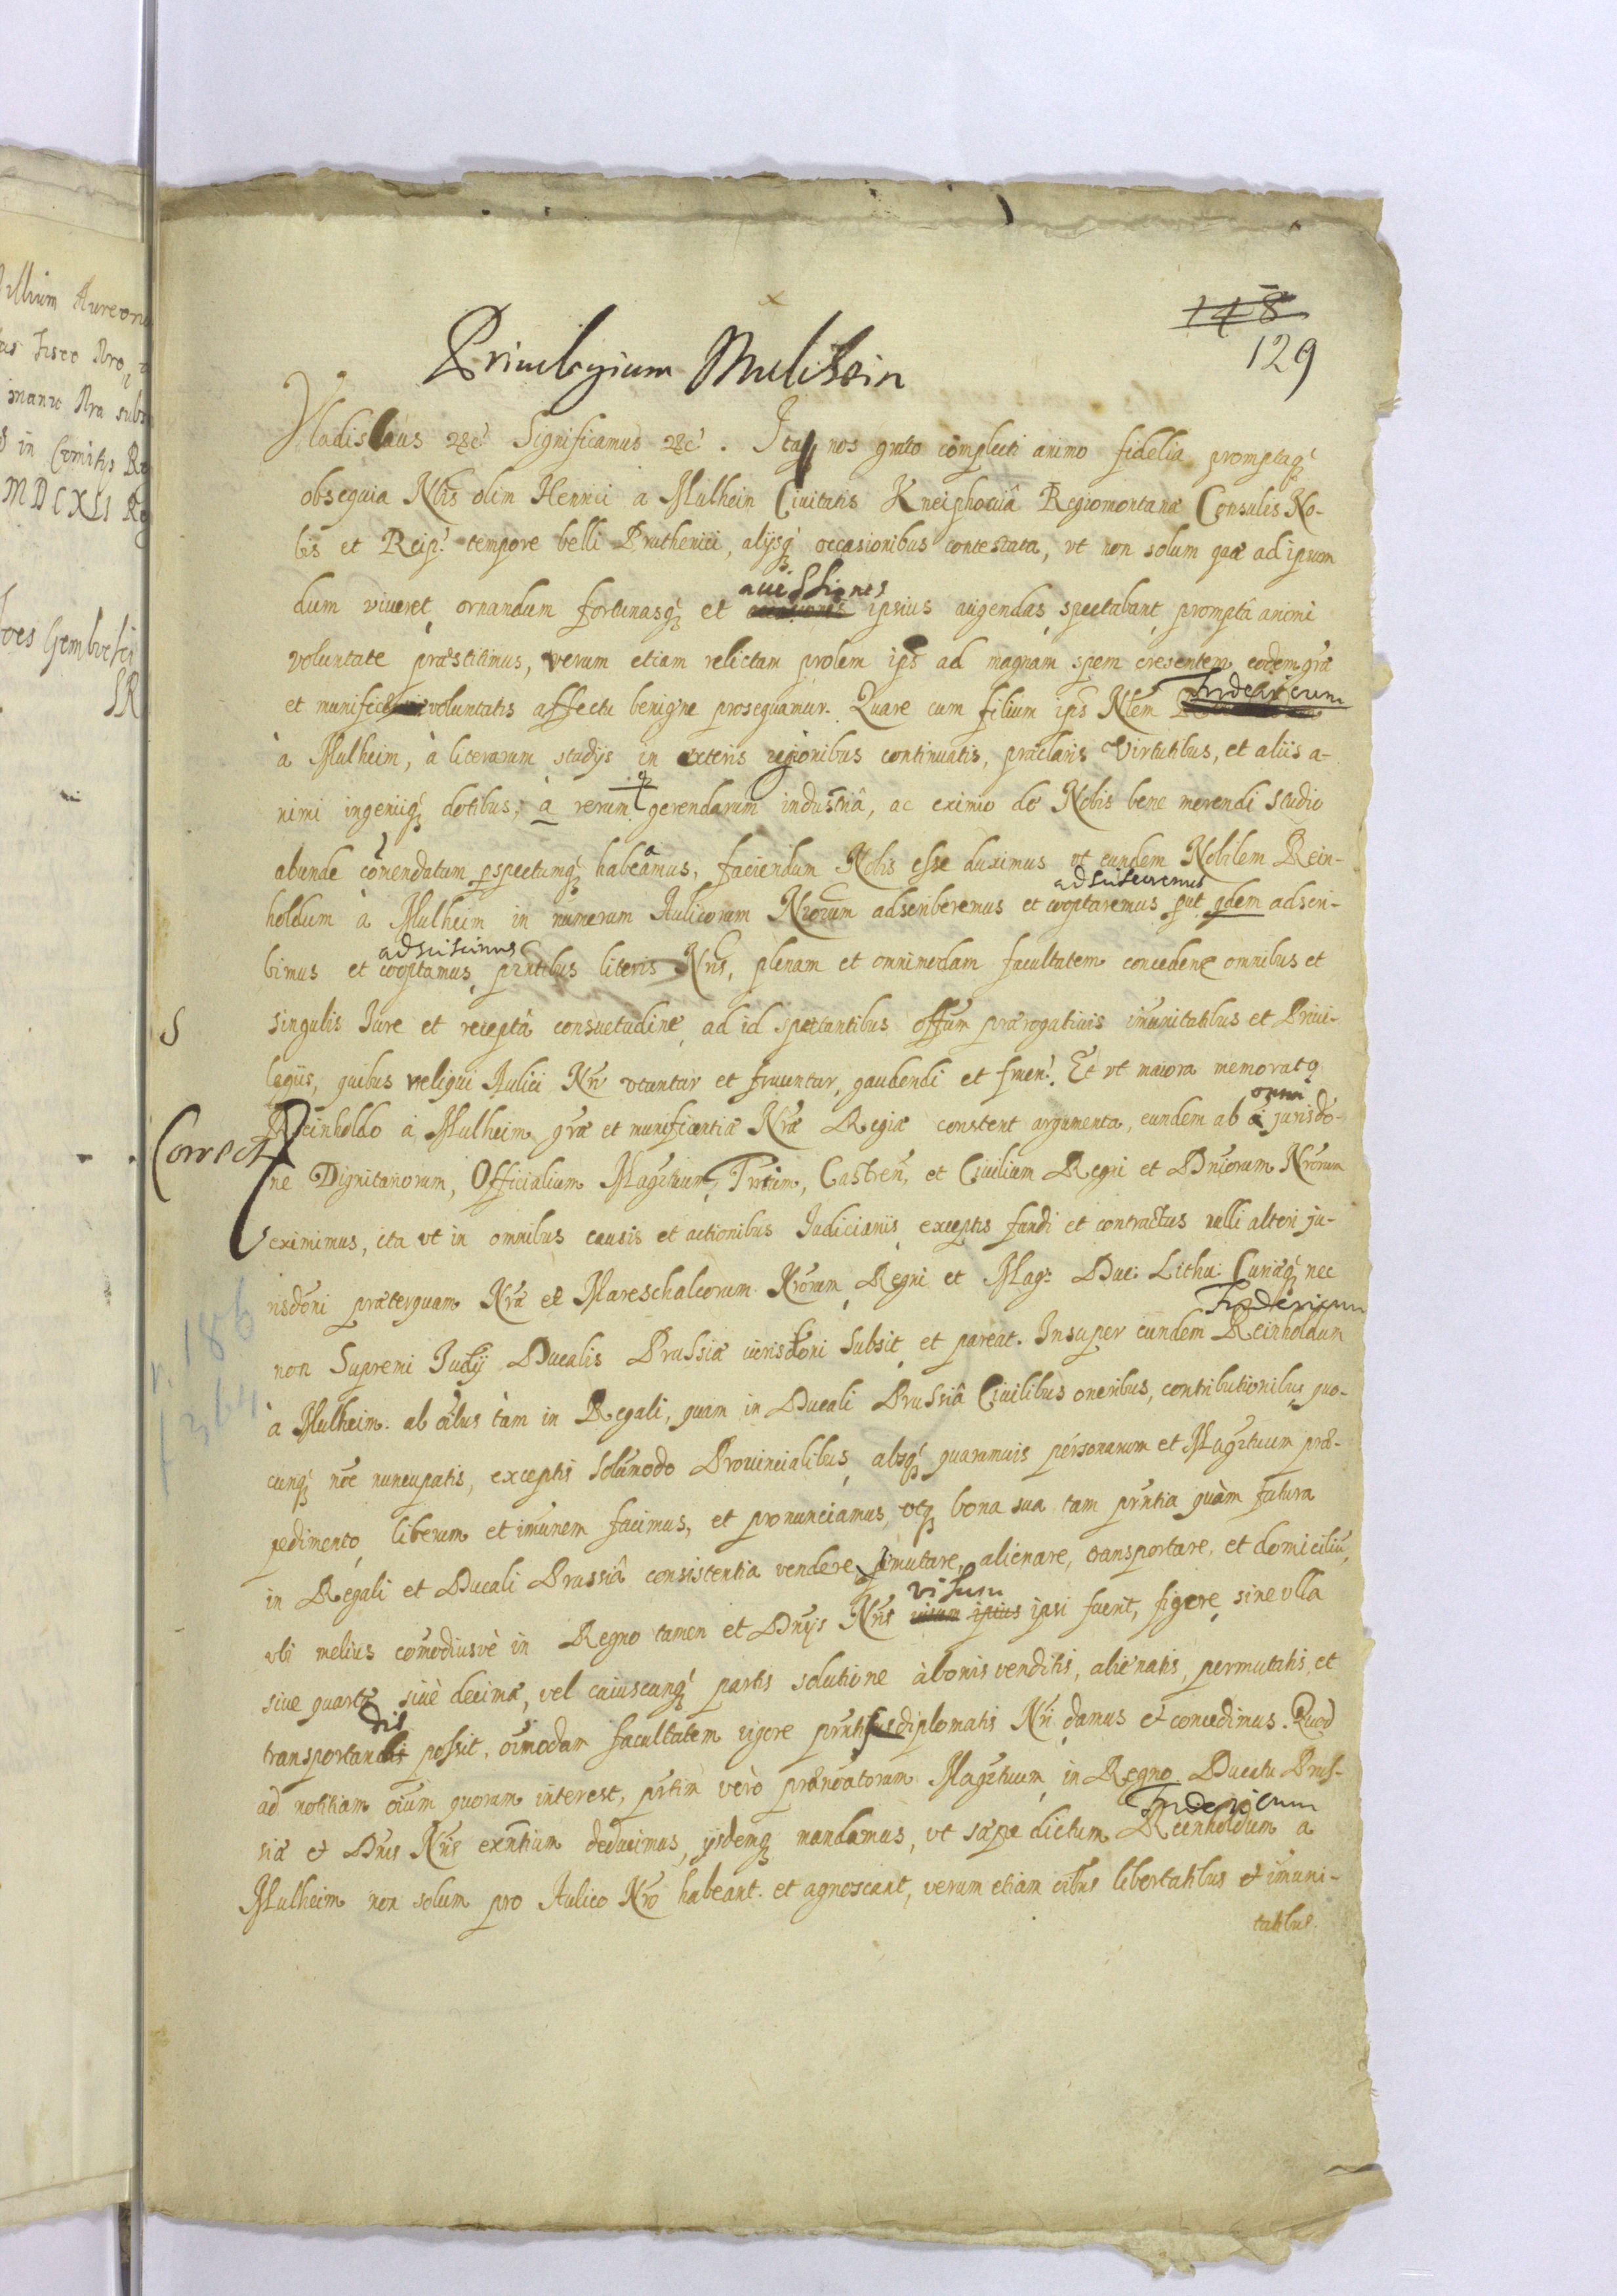 148
129
Priuilegium Mulhein
Vladislaus etc. Significamus etc. Ita nos grato complecti animo fidelia promptaq3
obsequia Nlis olim Henrici a Mulhein Ciuitatis Kneiphouiâ Regiomontanæ Consulis No-
bis et Reip. tempore belli Pruthenici, alijsq3 occasionibus contestata, vt non solum quæ ad ipsum
dum viueret, ornandum fortunasq3 et ipsius augendas spectabant prompta animi
voluntate præstitimus, verum etiam relictam prolem ips ad magnam spem cresentem eodem græ
et munificæ voluntatis affectu benigne prosequamur. Quare cum filium ips Nlem Fridericum
à Mulheim, à literarum studijs in exteris regionibus continuatis, præclaris Virtutibus, et aliis a-
nimi ingeniiq3 dotibus, à rerum gerendarum industriâ, ac eximio de Nobis bene merendi studio
abunde comendatum pspectumq3 habeamus, faciendum Nobis esse duximus vt eundem Nobilem Rein-
adscisceremus
holdum à Mulheim in numerum Aulicorum Nrorum adscriberemus et cooptaremus put qdem adscri-
adsciscimus
bimus et cooptamus prntibus literis Nris, plenam et omnimodam facultatem conceden omnibus et
S
singulis Jure et recepta consuetudine ad id spectantibus offum prærogatiuis imunitatibus et Priui-
legiis, quibus reliqui Aulici Nri vtuntur et fruuntur, gaudendi et fruen. Et vt maiora memorato
omni
Correct
Reinholdo à Mulheim græ et munificentiæ Nræ Regiæ constent argumenta, eundem ab jurisdo-
ne Dignitariorum, Officialium Magrtuum, Trrim, Castren, et Ciuilium Regni et Dniorum Nrorum
eximimus, ita vt in omnibus causis et actionibus Judiciariis exceptis fundi et contractus nulli alteri ju-
risdoni præterquam Nræ et Mareschalcorum Nrorum Regni et Mag: Duc: Lithu: Curiæq3 nec
Fridericum
non Supremi Judij Ducalis Prussiæ iurisdoni subsit et pareat. Insuper eundem Reinholdum
à Mulheim ab oibus tàm in Regali, quam in Ducali Prussiâ Ciuilibus oneribus, contributionibus quo-
cunq3 noe nuncupatis, exceptis solumodo Prouincialibus absq3 quarumuis personarum et Magrtuum præ-
pedimento liberum et imunem facimus, et pronunciamus vtq3 bona sua tam prntia quàm futura
in Regali et Ducali Prussiâ consistentia vendere pmutare, alienare, transportare, et domicilium
visum
vbi melius comodiusvè in Regno tamen et Dnijs Nris visum ipsius ipsi fuerit, figere sine vlla
siue quartæ siuè decimæ, vel cuiuscunq3 partis solutione à bonis venditis, alienatis, permutatis, et
dis
transportandis possit, oimodam facultatem vigore prntis diplomatis Nri damus et concedimus. Quod
ad notitiam oium quorum interest, prtim verò prænoatorum Magrtuum in Regno Ducatu Prus-
Fridericum
siæ et Dnis Nris exntium deducimus, ijsdemq3 mandamus, vt sæpe dictum Reinholdum a
Mulheim non solum pro Aulico Nro habeant et agnoscant, verum etiam oibus libertatibus et imuni-
tatibus
186
illium Aureoru
Fisco Nro
manu Nra subs
in Comitijs Re
MDCXLI Re